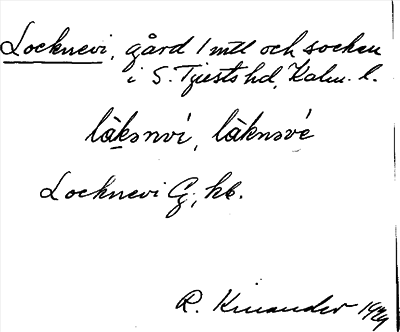 Locknevi, gård 1 mtl och socken
i S. Tjusts hd, Kalm. l.
låksnvi, låknsvé
Locknevi G, hb.
R. Kinander 1929